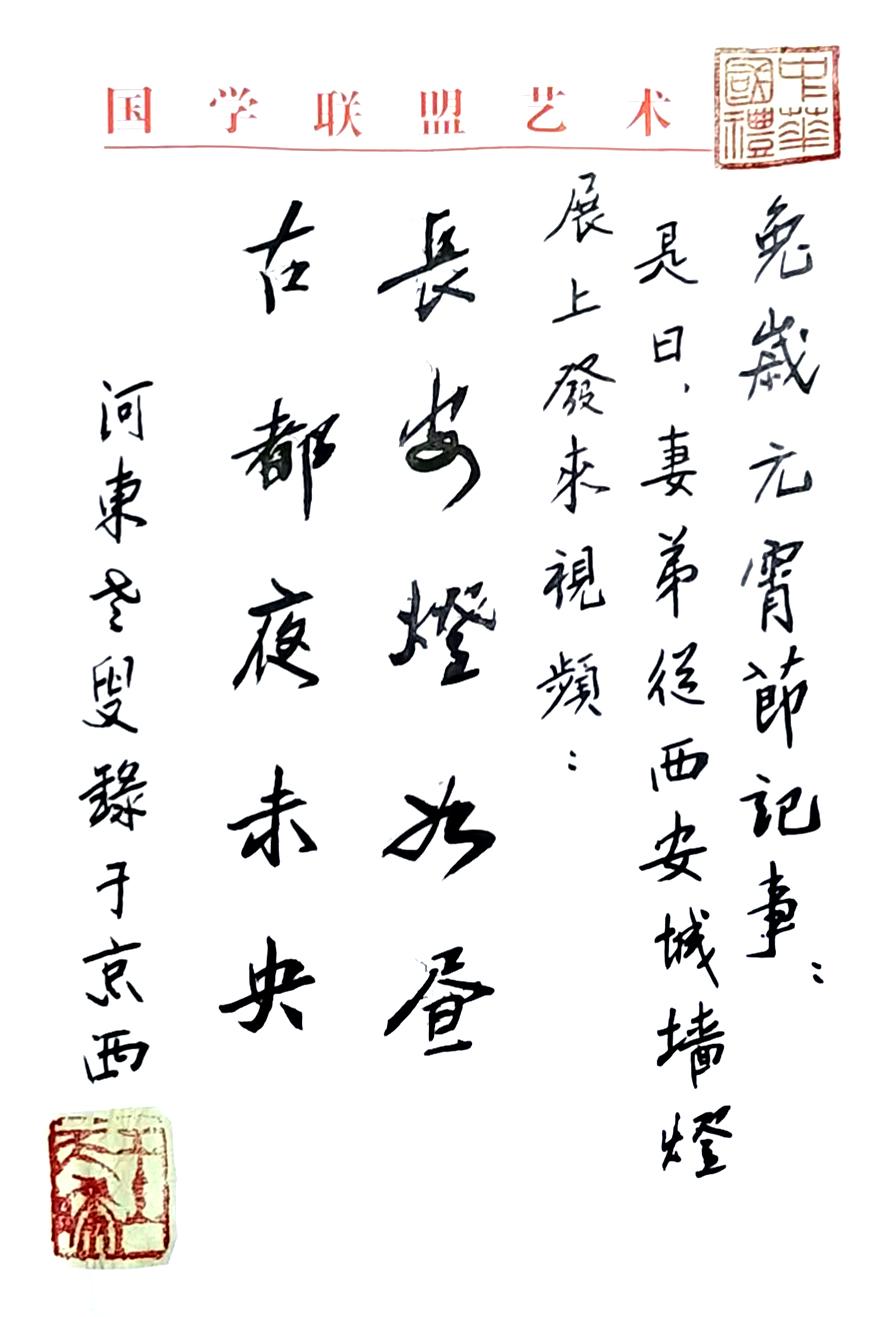 国学联盟艺术
中華國禮
兔歲元宵節記事：
是日，妻弟從西安城墻燈
展上發來視頻：
長安燈如晝
古都夜未央
河東老叟錄于京西